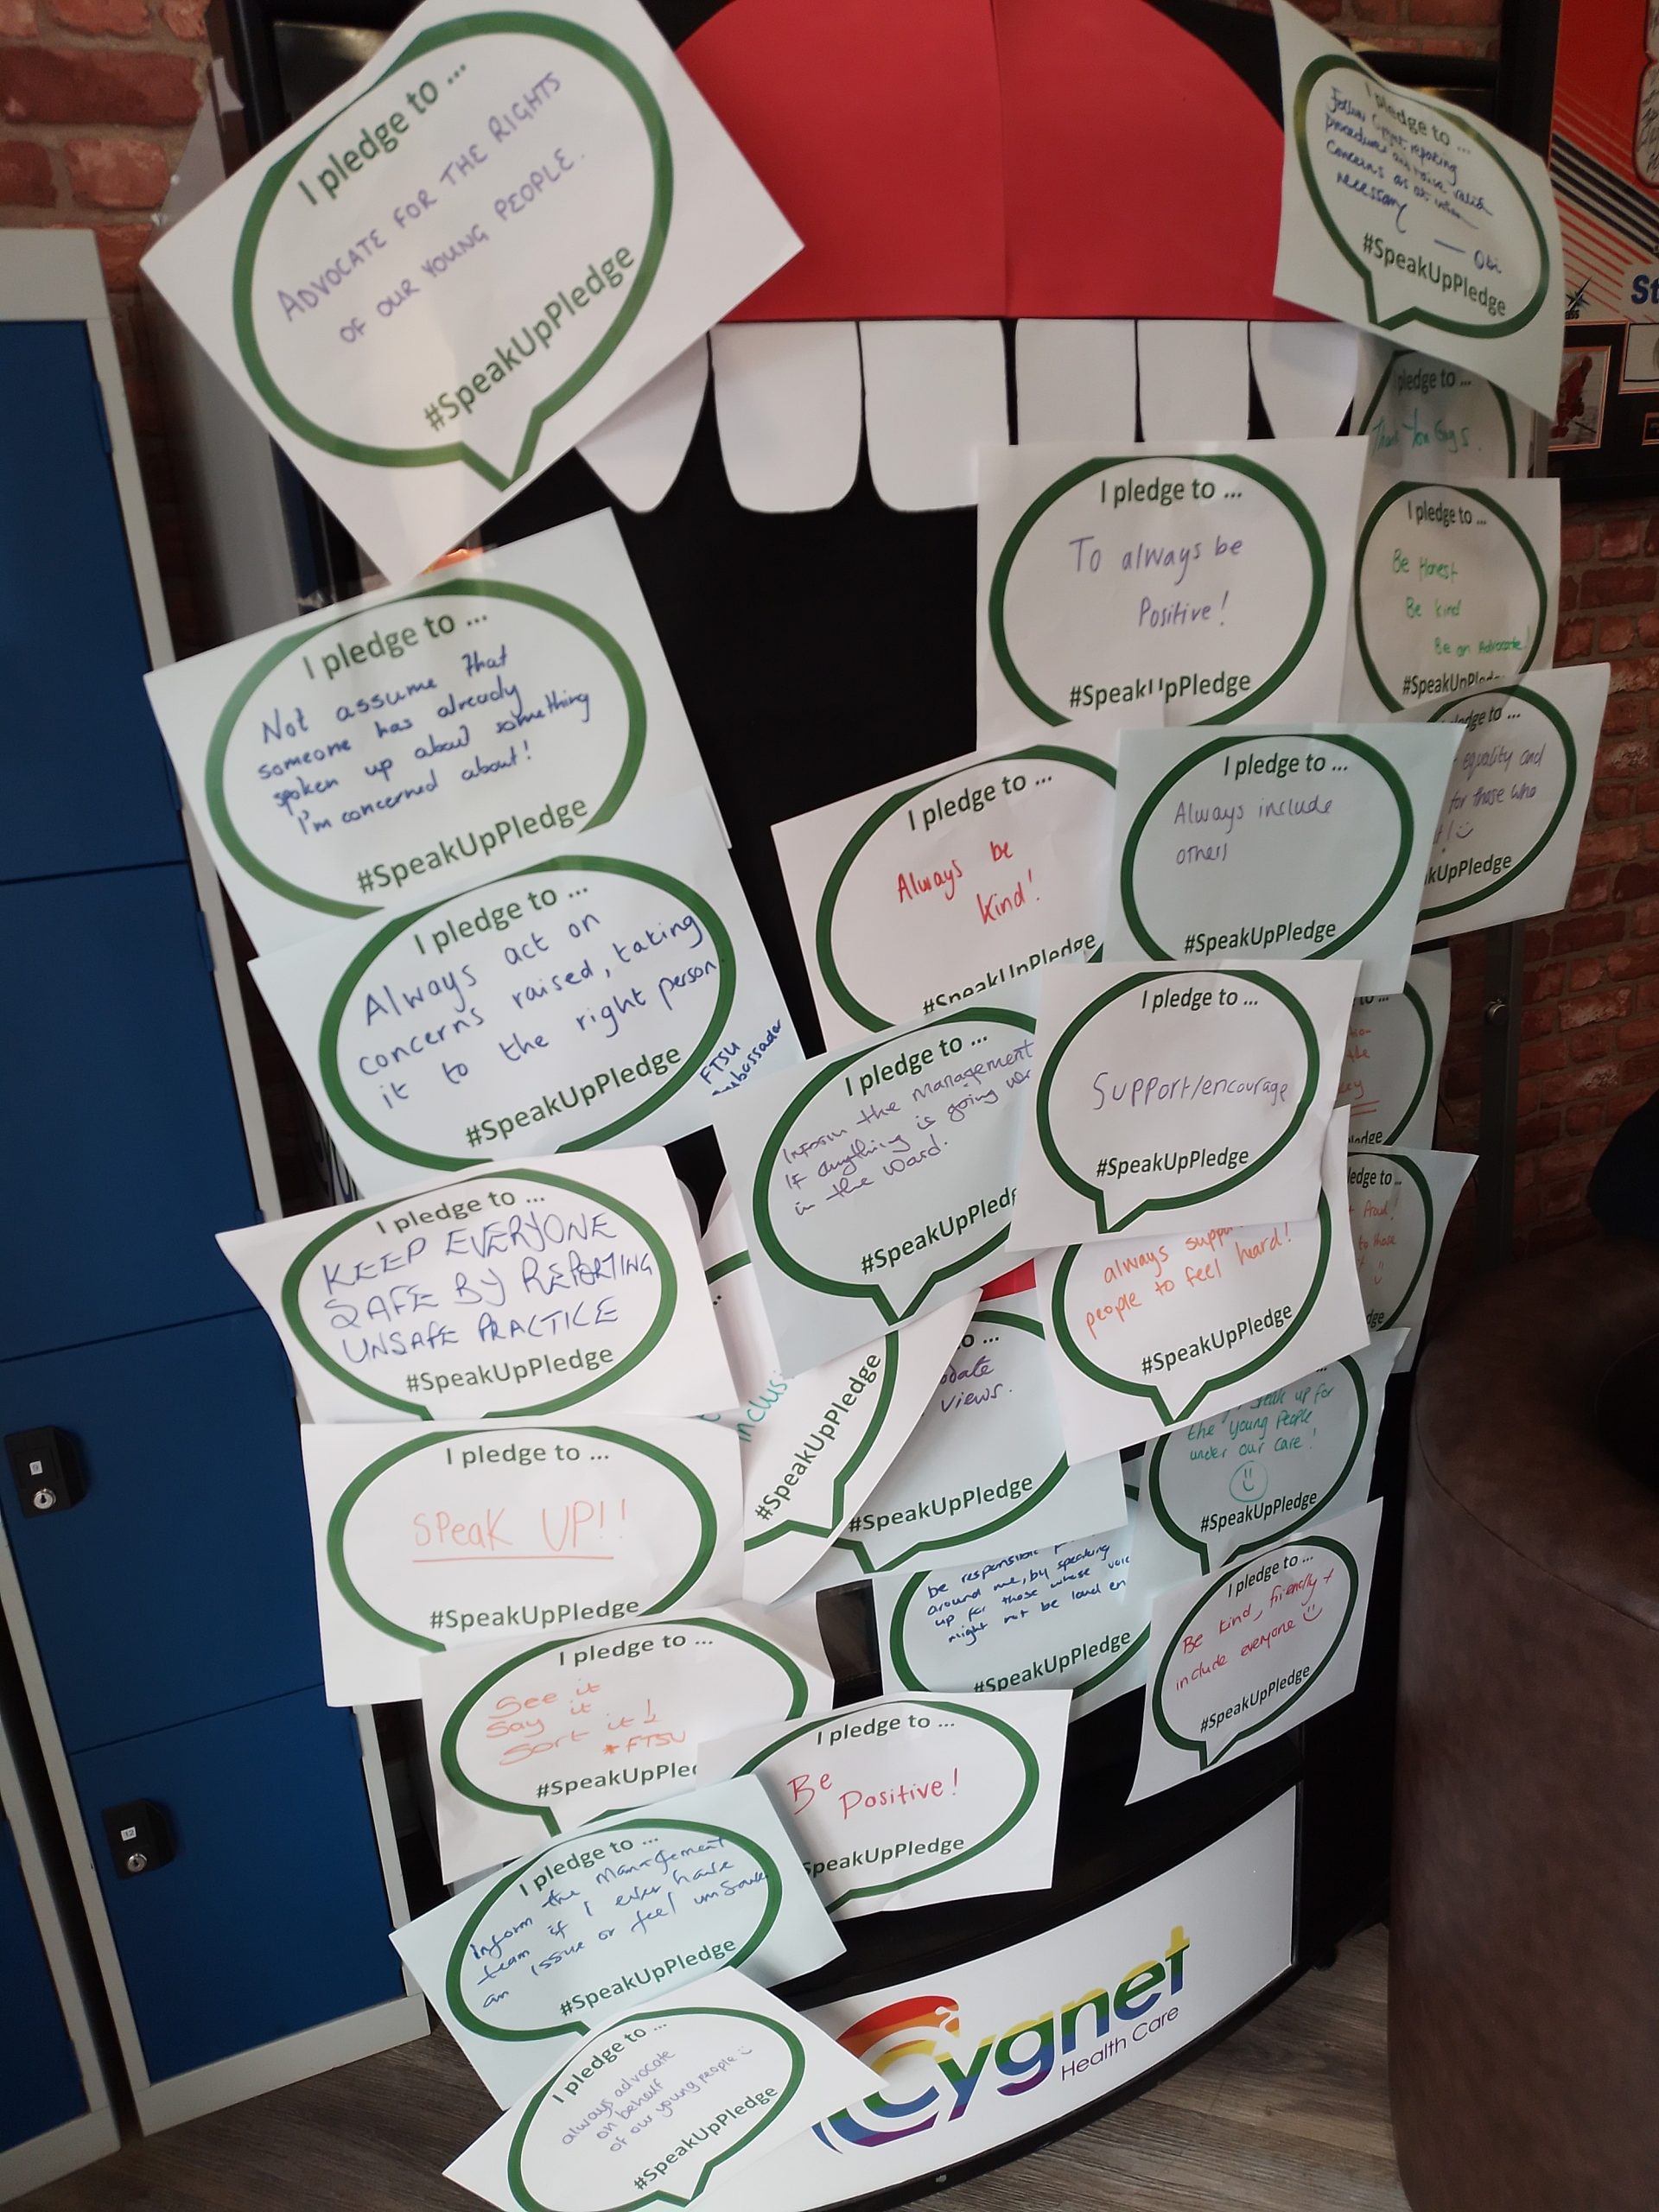 I pledge to ...
ADVOCATE FOR THE RIGHTS
OF OUR YOUNG PEOPLE.
#SpeakUpPledge
I pledge to ...
Follow Cygnet reporting
procedures and raise valid
concerns as at when
necessary
— Obi
#SpeakUpPledge
pledge to ...
Thank You Guys.
I pledge to ...
To always be
Positive!
#SpeakUpPledge
I pledge to ...
Be Honest
Be kind
Be an Advocate!
#SpeakUpPledge
I pledge to ...
Not assume that
someone has already
spoken up about something
I'm concerned about!
#SpeakUpPledge
ledge to ...
equality and
for those who
kUpPledge
I pledge to ...
Always be
kind!
#SpeakUpPledge
I pledge to ...
Always include
others
#SpeakUpPledge
I pledge to ...
Always act on
concerns raised, taking
it to the right person
#SpeakUpPledge
FTSU
mbassador
I pledge to ...
Inform the management
If anything is going
in the ward.
#SpeakUpPledg
I pledge to ...
Support/encourage
#SpeakUpPledge
to ...
the
ledge
I pledge to ...
KEEP EVERYONE
SAFE BY REPORTING
UNSAFE PRACTICE
#SpeakUpPledge
always supp
people to feel heard!
#SpeakUpPledge
ledge to ...
to those
dge
inclusi
#SpeakUpPledge
to ...
date
views.
#SpeakUpPledge
speak up for
the young People
under our care!
#SpeakUpPledge
I pledge to ...
SPeaK UP!!
#SpeakUpPledge
be responsible
around me, by speaking
up for those whose voic
might not be loud en
#SpeakUpPledge
I pledge to ...
Be kind, friendly +
include everyone
#SpeakUpPledge
I pledge to ...
See it
Say it
Sort it!
*FTSU
#SpeakUpPled
I pledge to ...
Be
Positive!
SpeakUpPledge
I pledge to ...
Inform the Management
team if I ever have
an issue or feel unsafe
#SpeakUpPledge
I pledge to ...
always advocate
on behalf
of our young people
#SpeakUpPledge
Cygnet
Health Care
St